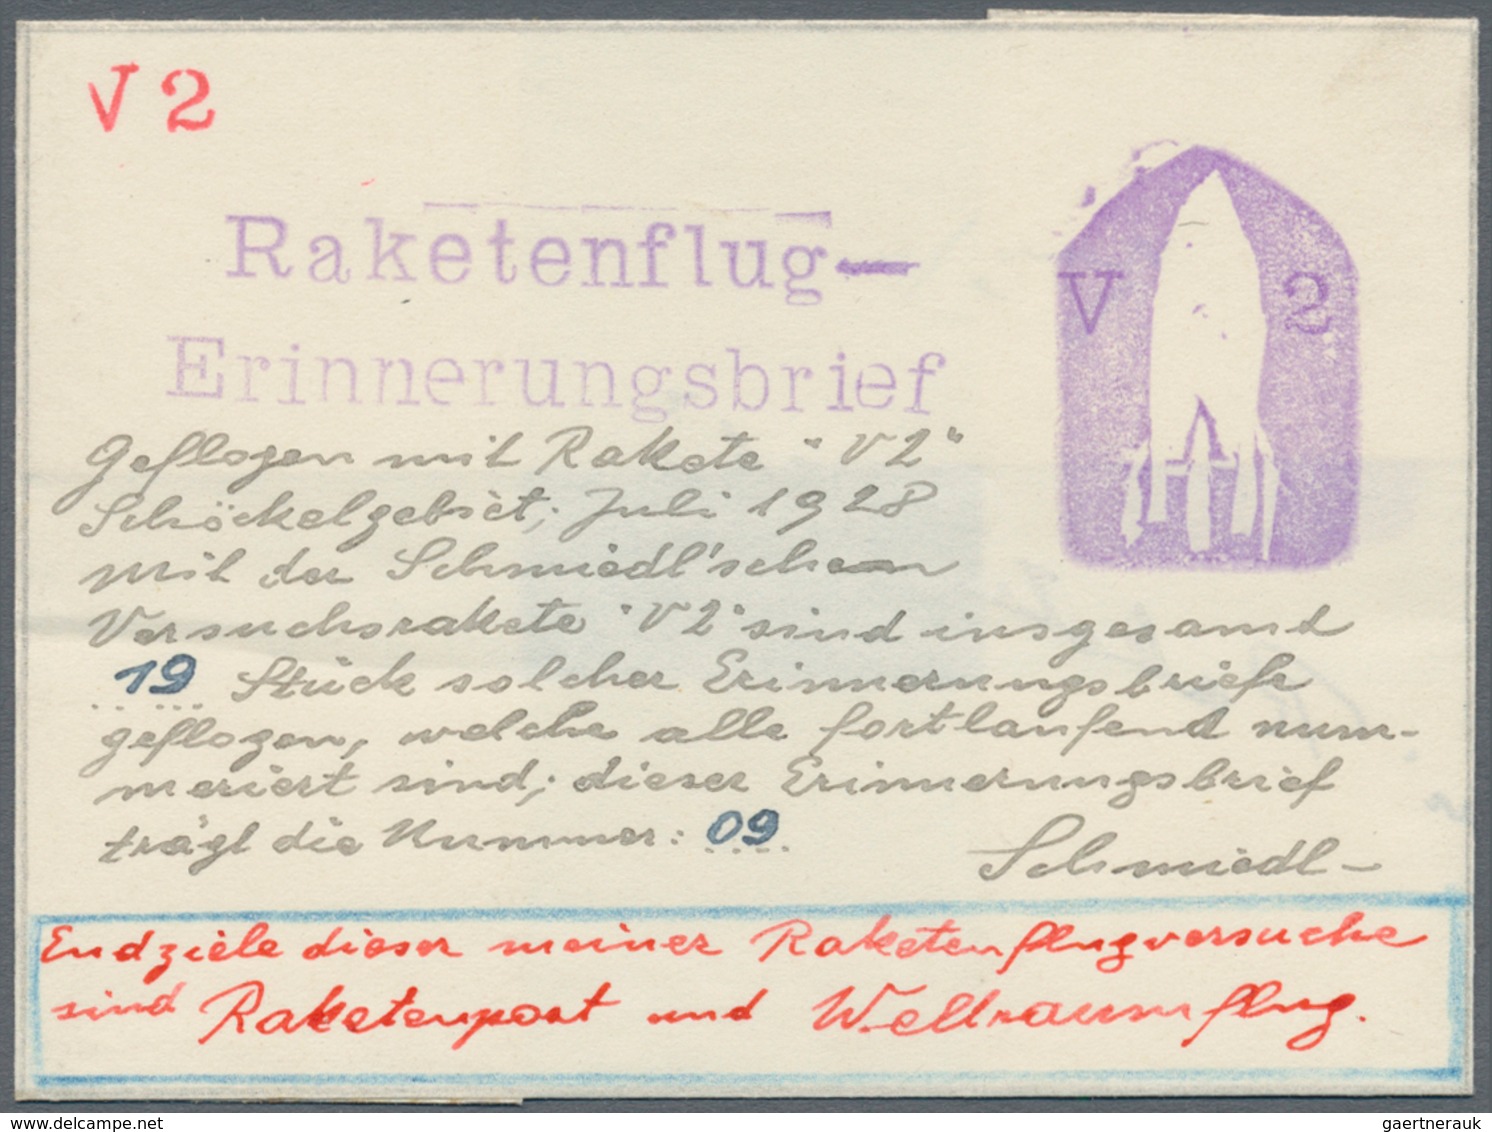 V 2
Raketenflug-
Erinnerungsbrief
V 2
Geflogen mit Rakete "V2"
Schöckelgebiet, Juli 1928
Mit der Schmiedl'schen
Versuchsrakete "V2" sind insgesamt
19 Stück solcher Erinnerungsbriefe
geflogen, welche alle fortlaufend num-
meriert sind; dieser Erinnerungsbrief
trägt die Nummer: 09
Schmiedl-
Endziele dieser meiner Raketenflugversuche
sind Raketenpost und Weltraumflug.
gaertnerauk